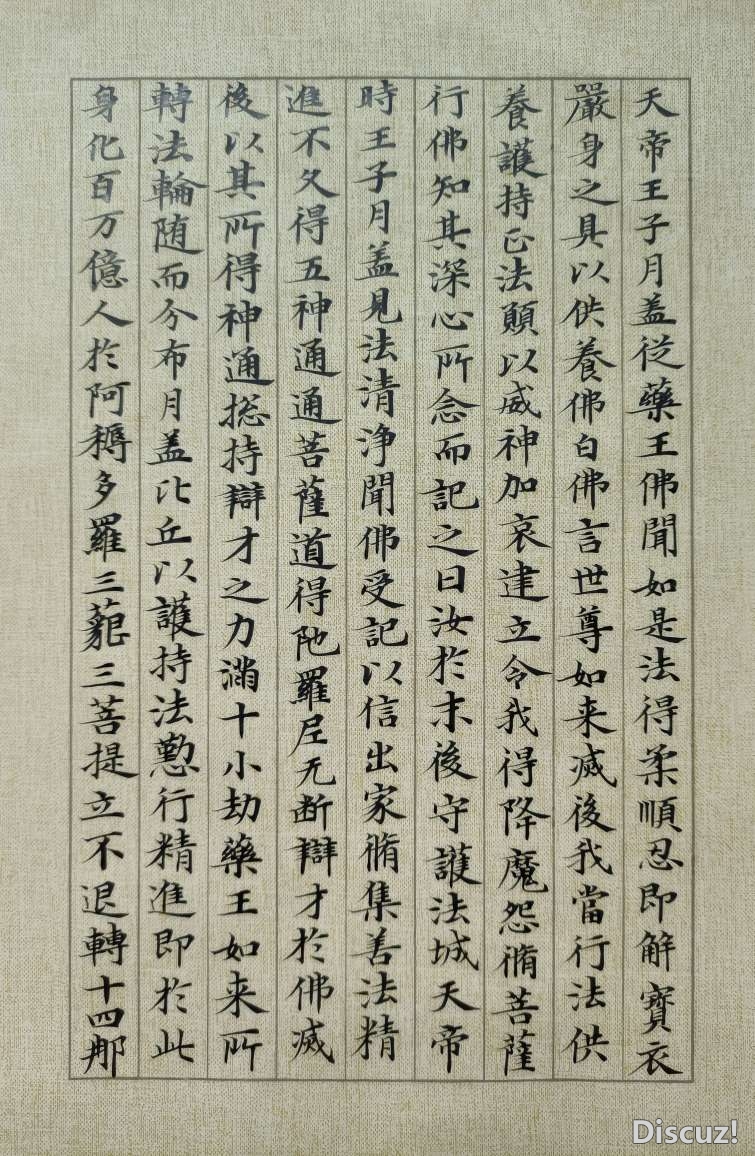 天帝王子月盖從藥王佛聞如是法得柔順忍即解寶衣
嚴身之具以供養佛白佛言世尊如来滅後我當行法供
養護持正法願以威神加哀建立令我得降魔怨脩菩薩
行佛知其深心所念而記之曰汝於末後守護法城天帝
時王子月盖見法清淨聞佛受記以信出家脩集善法精
進不久得五神通通菩薩道得陁羅尼无断辯才於佛滅
後以其所得神通捴持辯才之力滿十小劫藥王如来所
轉法輪随而分布月盖比丘以護持法懃行精進即於此
身化百万億人於阿耨多羅三藐三菩提立不退轉十四那
Discuz!